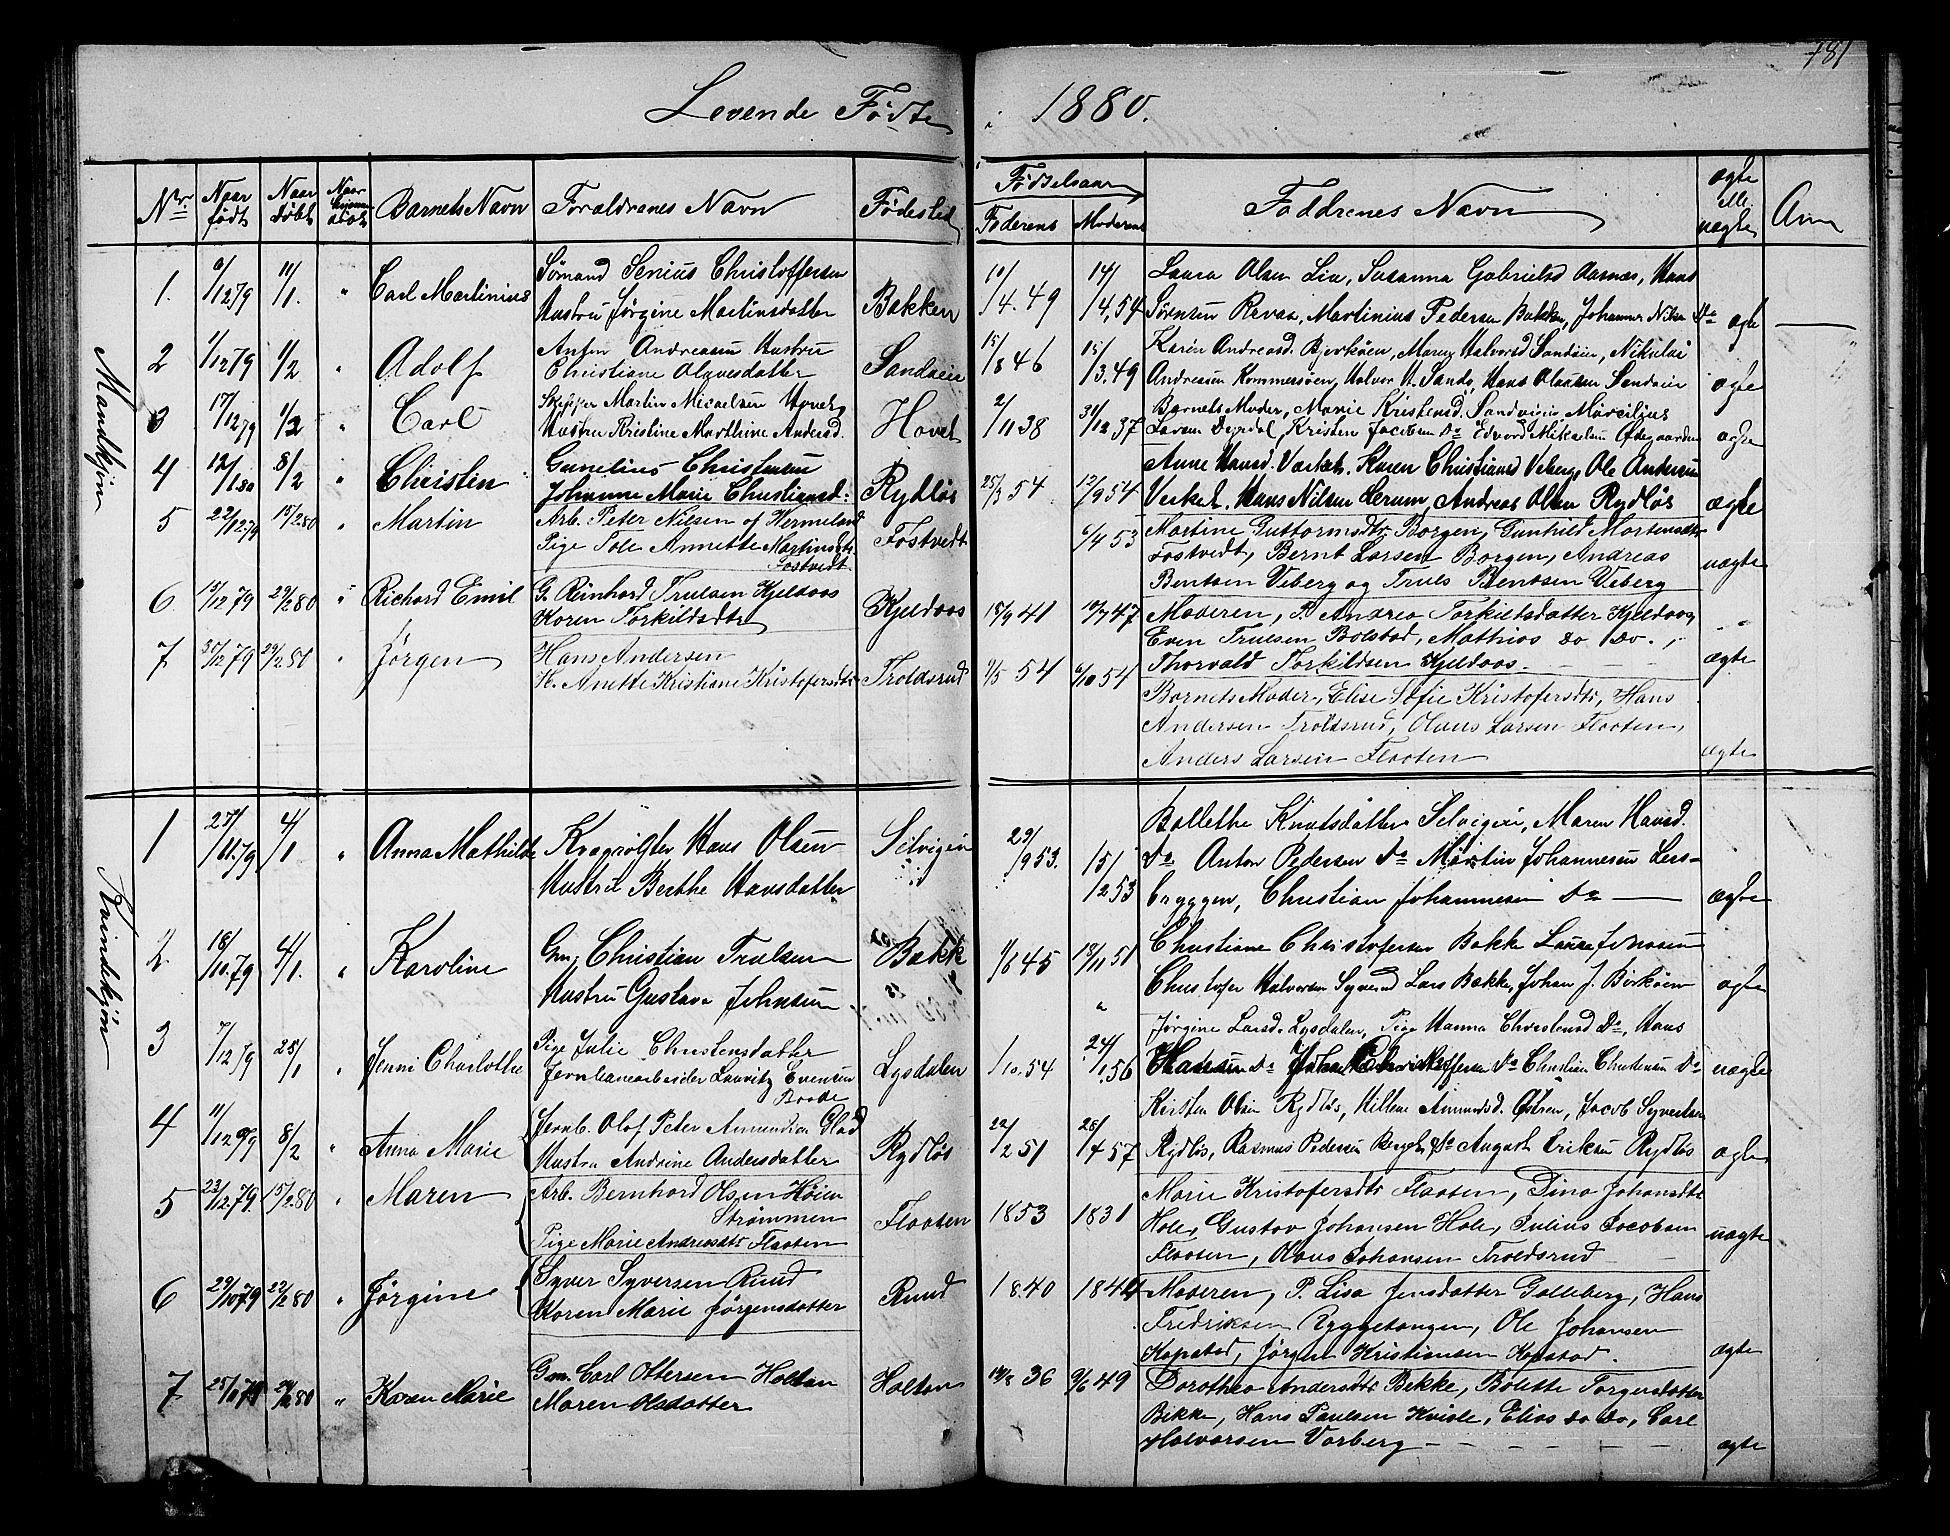 181
Levende Fødte i 1880.
Nr. Naar født Naar døbt Barnets Navn Forældrenes Navn Fødested Fødselsaar Faderens Moderens Faddrenes Navn ægte ell. uægte Anm
Mandkjøn
1. 6/12 79 11/1. " Carl Martinius Sømand Senius Christoffersen Bakken 10/4. 49 14/4, 54 Laura Olsen Lia, Susanna Gabrielsd Aasnæs, Hans
Hustru Jørgine Martinsdatter Sørensen Revaa, Martinius Pedersen Bakken, Johannes Nilsen Do ægte
2 1/12 79 1/2 " Adolf Anton Andreasen Hustru Sandseie 15/8 46 15/3. 49 Karen Andreasd. Bjerkøen, Maren Halvorsd Sandseie, Nikolai
Christiane Olavesdatter Andreasen Kommersøen, Halvor H. Sando, Hans Olausen Sandseie ægte
3 17/12 79 1/2 " Carl Skipper Martin Micaelsen Hovet Hovet 2/11 38 31/12 37 Barnets Moder, Marie Kristensd. Sandvigen, Marcilius
Hustru Kristine Marthine Andersd. Larsen Døvedal, Kristen Jacobsen Do Edvard Mikaelsen Ødegaarden ægte
4 12/1 80 8/2 " Christen Gunelius Christensen Rydløs 25/3 54 12/9 54 Anne Hansd. Værket. Karen Christiansd Veberg, Ole Andersen
Johanne Marie Christiansd: Verket. Hans Nilsen Serum, Andreas Olsen Rydløs ægte
5 22/12 79 15/2 80 " Martin Arb. Peter Nilsen af Hermeland Fostvedt 6/4 53 Martine Guttormsdtr Borgen, Gunhild Mortensdtr
Pige Tole Annette Martinsdtr. Fostvedt, Bernt Larsen Borgen, Andreas
Fostvedt Bentsen Veberg og Truls Bentsen Veberg uægte
6 15/12 79 29/2 80 " Richard Emil G. Reinhard Trulsen Kjeldaas Kjeldaas 18/9 41 17/7 47 Moderen, P. Andrea Torkildsdatter Kjeldaas,
Karen Torkildsdtr Even Trulsen Bolstad, Mathias do do.,
7 30/12 79 29/2 80 " Jørgen Hans Andersen Troldsrud 9/5 54 6/10 54 Thorvald Torkildsen Kjeldaas. ægte
H. Anette Kristiane Kristofersdtr Barnets Moder, Elise Sofie Kristofersdtr, Hans
Andersen Troldsrud, Olaus Larsen Flaaten,
Anders Larsen Flaaten ægte
Kvindekjøn
1 27/11. 79 4/1 " Anna Mathilde Kvægrøgter Hans Olsen Selvigen 29/9 53. 15/12 53 Bollethe Knutsdatter Selvigen, Maren Hansd.
Hustru Berthe Hansdatter Do Anton Pedersen Do Martin Johannesen Lers-
bryggen, Christian Johannesen Do ægte
2. 18/10. 79 4/1. " Karoline Gm. Christian Trulsen Bakke 1/6 45 13/11 51 Christiane Christofersen Bakke Laura Jonasen
Hustru Gustava Johnsen Christofer Halvorsen Syverud Lars Bakke, Johan J. Birkøen ægte
3 7/12 79 25/1 " Jenni Charlothe Pige Julie Christensdatter Lysdalen 1/10. 54 24/1. 56 Jørgine Larsd. Lysdalen, Pige Hanna Christensd Do, Hans
Jernbanearbeider Lauritz Evensen Hansen Do Christoffersen Do Christian Christensen Do uægte
4 11/12 79 8/2 " Anna Marie Jernb. Olof Peter Amundsen Glad Rydløs 22/2 51 28/4 57 Kirsten Olsen Rydløs, Millene Amundsd. Østren, Jacob Syvertsen
Hustru Andrine Andersdatter Rydløs, Rasmus Pedersen Berget, Do August Eriksen Rydløs ægte
5 23/12 79. 15/2 80 " Maren Arb. Bernhard Olsen Høien Flaaten 1853 1831 Marie Kristofersdtr Flaaten, Dina Johansdtr
Strømmen Hole, Gustav Johansen Hole, Julius Jacobsen
Pige Marie Andreasdtr Flaaten Flaaten, Hans Johansen Troldsrud uægte
6 29/10 79 22/2 80 " Jørgine Syver Syversen Ruud Ruud 1840 1844 Moderen, P. Lisa Jensdatter Galleberg, Hans
Karen Marie Jørgensdatter Fredriksen Ryggetangen, Ole Johansen
Kapstad, Jørgen Kristiansen Kapstad. ægte
7 25/11 79 29/2 80 " Karen Marie Gm. Carl Ottersen Holtan Holtan 14/8 36 9/6 49 Dorothea Andersdtr Bekke, Bolette Torgersdatter
Maren Olsdatter Bekke, Hans Paulsen Kviole, Elias do do, Carl
Halvorsen Varberg ægte